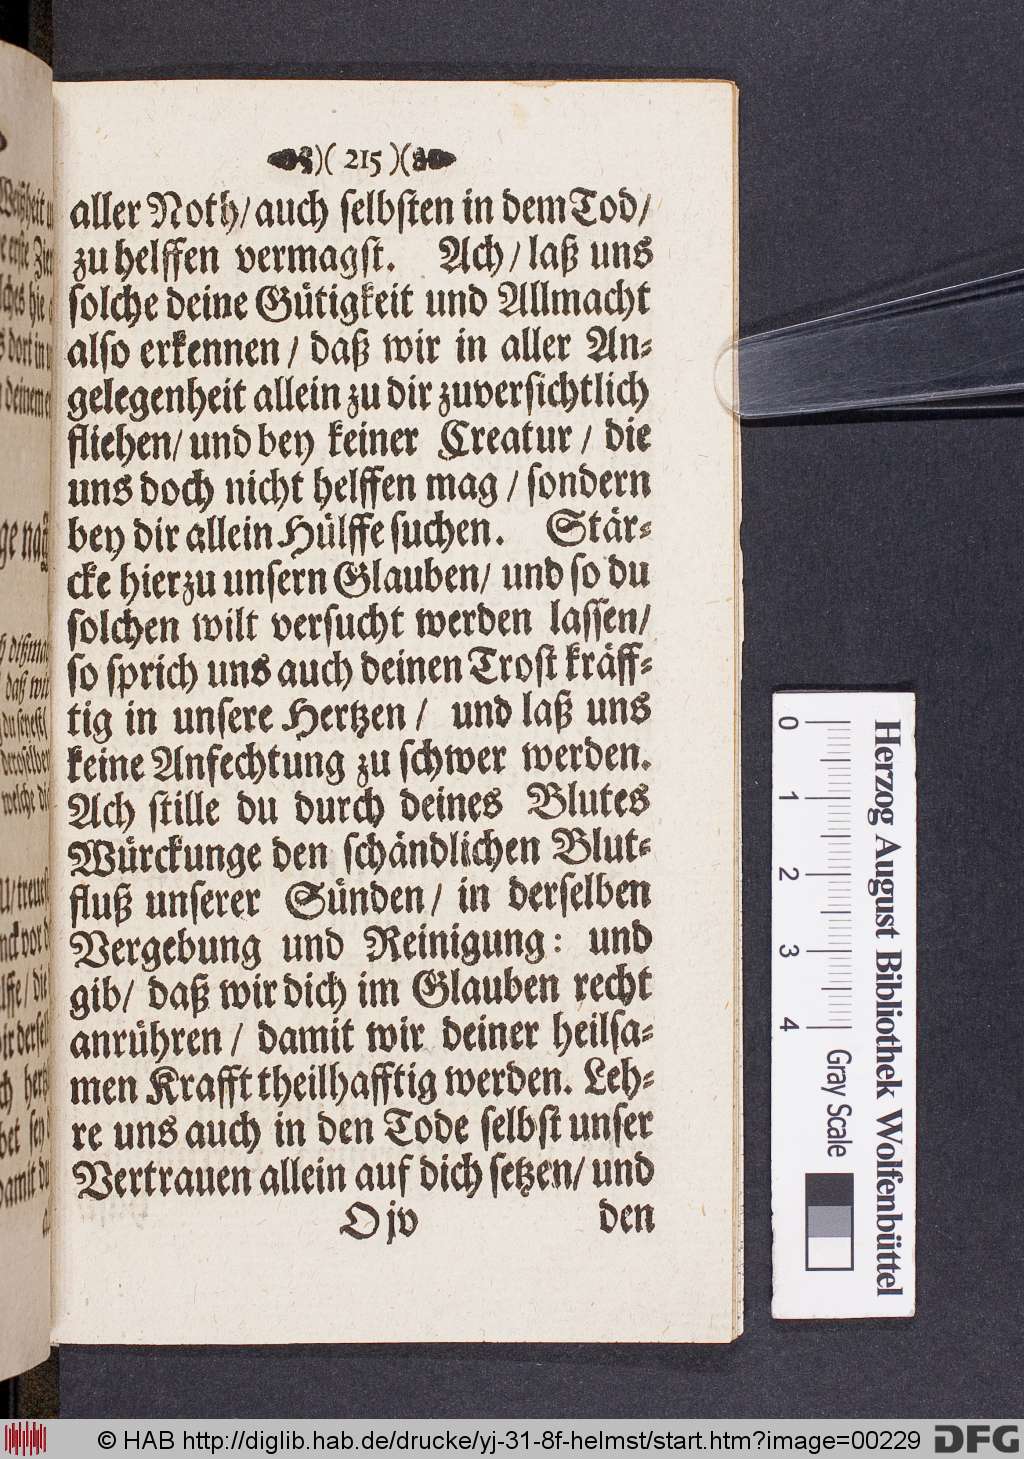 )( 215 )(
aller Noth/ auch selbsten in dem Tod/
zu helffen vermagst. Ach/ laß uns
solche deine Gütigkeit und Allmacht
also erkennen/ daß wir in aller An-
gelegenheit allein zu dir zuversichtlich
fliehen/ und bey keiner Creatur/ die
uns doch nicht helffen mag/ sondern
bey dir allein Hülffe suchen. Stär-
cke hierzu unsern Glauben/ und so du
solchen wilt versucht werden lassen/
so sprich uns auch deinen Trost kräff-
tig in unsere Hertzen/ und laß uns
keine Anfechtung zu schwer werden.
Ach stille du durch deines Blutes
Würckunge den schändlichen Blut-
fluß unserer Sünden/ in derselben
Vergebung und Reinigung: und
gib/ daß wir dich im Glauben recht
anrühren/ damit wir deiner heilsa-
men Krafft theilhafftig werden. Leh-
re uns auch in den Tode selbst unser
Vertrauen allein auf dich setzen/ und
O jv den
0 1 2 3 4 Gray Scale
Herzog August Bibliothek Wolfenbüttel
© HAB http://diglib.hab.de/drucke/yj-31-8f-helmst/start.htm?image=00229
DFG